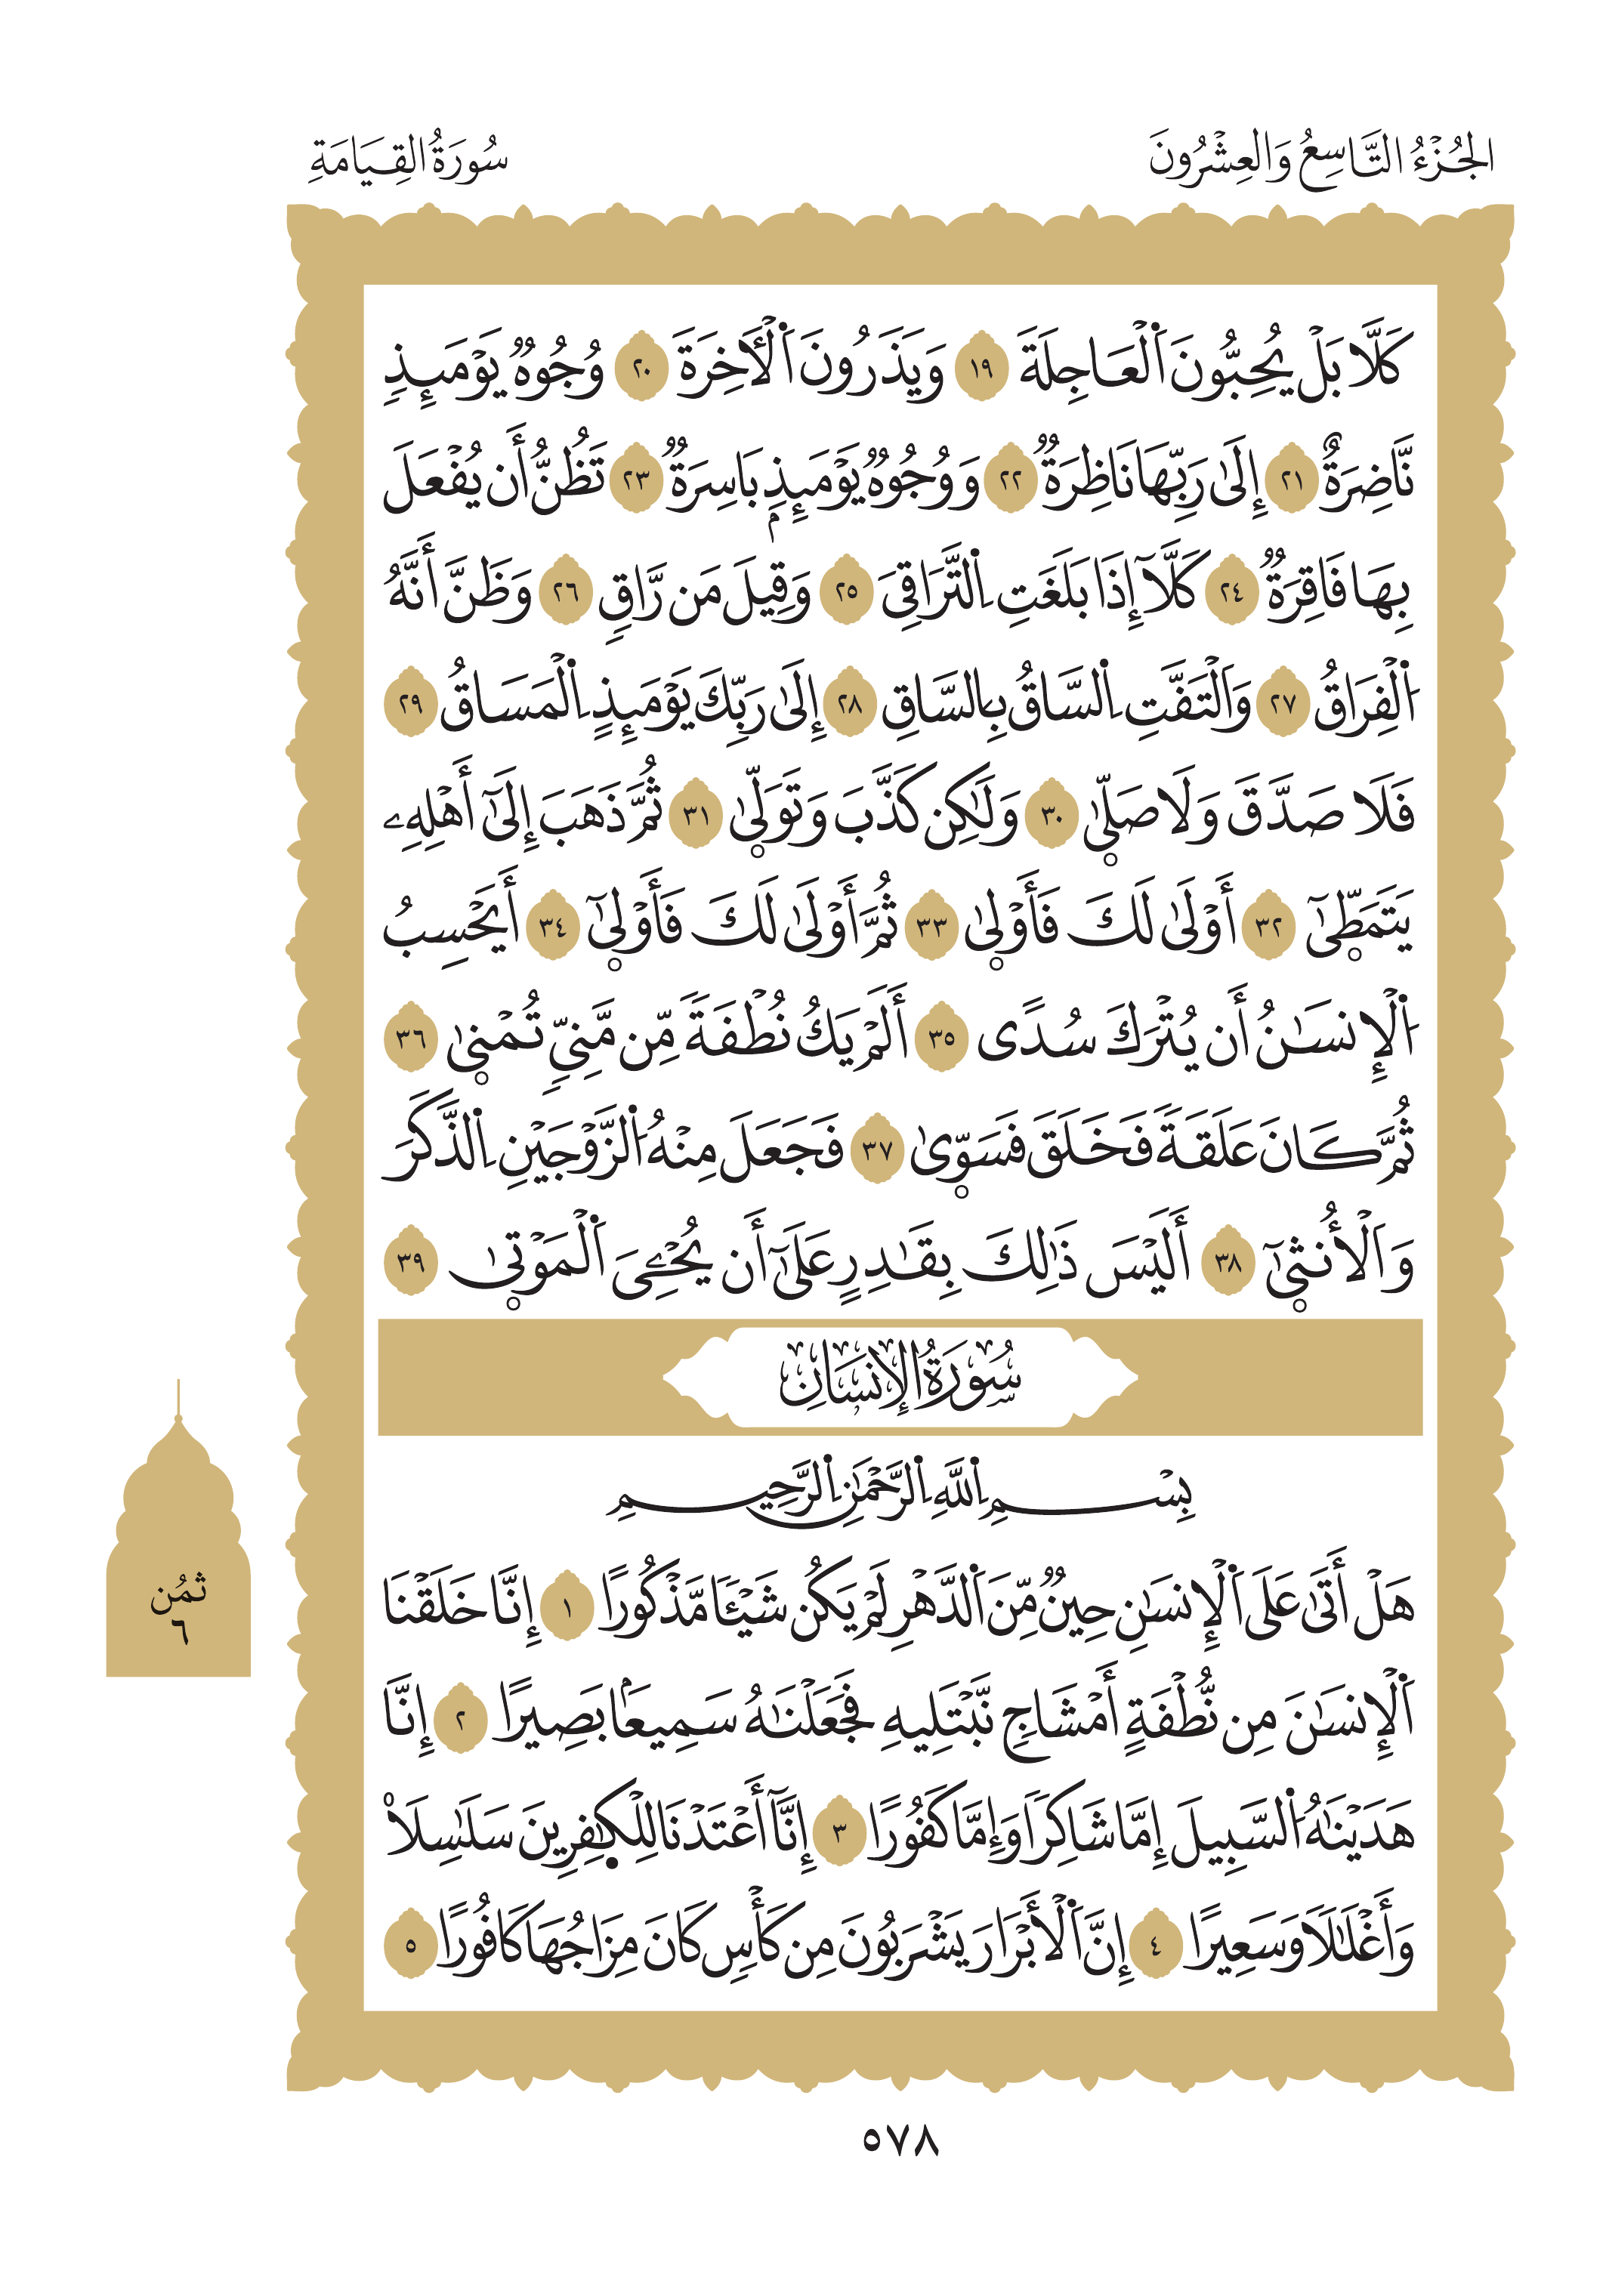 الجُزْءُ التَّاسِعُ وَالعِشْرُونَ
سُورَةُ القِيَامَةِ
كَلَّا بَلْ يُحِبُّونَ اَ۬لْعَاجِلَةَ ١٩ وَيَذَرُونَ اَ۬لْأٓخِرَةَ ٢٠ وُجُوهٞ يَوْمَئِذٖ
نَّاضِرَةٌ ٢١ إِلَىٰ رَبِّهَا نَاظِرَةٞ ٢٢ وَوُجُوهٞ يَوْمَئِذِۢ بَاسِرَةٞ ٢٣ تَظُنُّ أَن يُفْعَلَ
بِهَا فَاقِرَةٞ ٢٤ كَلَّآ إِذَا بَلَغَتِ اِ۬لتَّرَاقِيَ ٢٥ وَقِيلَ مَن رَّاقٖ ٢٦ وَظَنَّ أَنَّهُ
اُ۬لْفِرَاقُ ٢٧ وَالْتَفَّتِ اِ۬لسَّاقُ بِالسَّاقِ ٢٨ إِلَىٰ رَبِّكَ يَوْمَئِذٍ اِ۬لْمَسَاقُ ٢٩
فَلَا صَدَّقَ وَلَا صَلّٜىٰ ٣٠ وَلَٰكِن كَذَّبَ وَتَوَلّٜىٰ ٣١ ثُمَّ ذَهَبَ إِلَىٰٓ أَهْلِهِۦ
يَتَمَطّٜىٰٓ ٣٢ أَوْلَىٰ لَكَ فَأَوْلٜىٰ ٣٣ ثُمَّ أَوْلَىٰ لَكَ فَأَوْلٜىٰٓ ٣٤ أَيَحْسِبُ
اُ۬لْإِنسَٰنُ أَن يُتْرَكَ سُدًى ٣٥ أَلَمْ يَكُ نُطْفَةٗ مِّن مَّنِيّٖ تُمْنٜىٰ ٣٦
ثُمَّ كَانَ عَلَقَةٗ فَخَلَقَ فَسَوّٜىٰ ٣٧ فَجَعَلَ مِنْهُ اُ۬لزَّوْجَيْنِ اِ۬لذَّكَرَ
وَاَلْأُنثٜىٰٓ ٣٨ أَلَيْسَ ذَٰلِكَ بِقَٰدِرٍ عَلَىٰٓ أَن يُحْـِۧيَ اَ۬لْمَوْتٜىٰ ٣٩
سُورَةُ الإِنسَانِ
بِسْمِ اِ۬للَّهِ اِ۬لرَّحْمَٰنِ اِ۬لرَّحِيمِ
هَلْ أَتَىٰ عَلَى اَ۬لْإِنسَٰنِ حِينٞ مِّنَ اَ۬لدَّهْرِ لَمْ يَكُن شَيْـٔٗا مَّذْكُورًا ١ إِنَّا خَلَقْنَا
اَ۬لْإِنسَٰنَ مِن نُّطْفَةٍ أَمْشَاجٖ نَّبْتَلِيهِ فَجَعَلْنَٰهُ سَمِيعَۢا بَصِيرًا ٢ إِنَّا
هَدَيْنَٰهُ اُ۬لسَّبِيلَ إِمَّا شَاكِرٗا وَإِمَّا كَفُورًا ٣ إِنَّآ أَعْتَدْنَا لِلْكٰٜفِرِينَ سَلَٰسِلَاْ
وَأَغْلَٰلٗا وَسَعِيرًا ٤ إِنَّ اَ۬لْأَبْرَارَ يَشْرَبُونَ مِن كَأْسٖ كَانَ مِزَاجُهَا كَافُورًا ٥
ثمُن
٦
٥٧٨